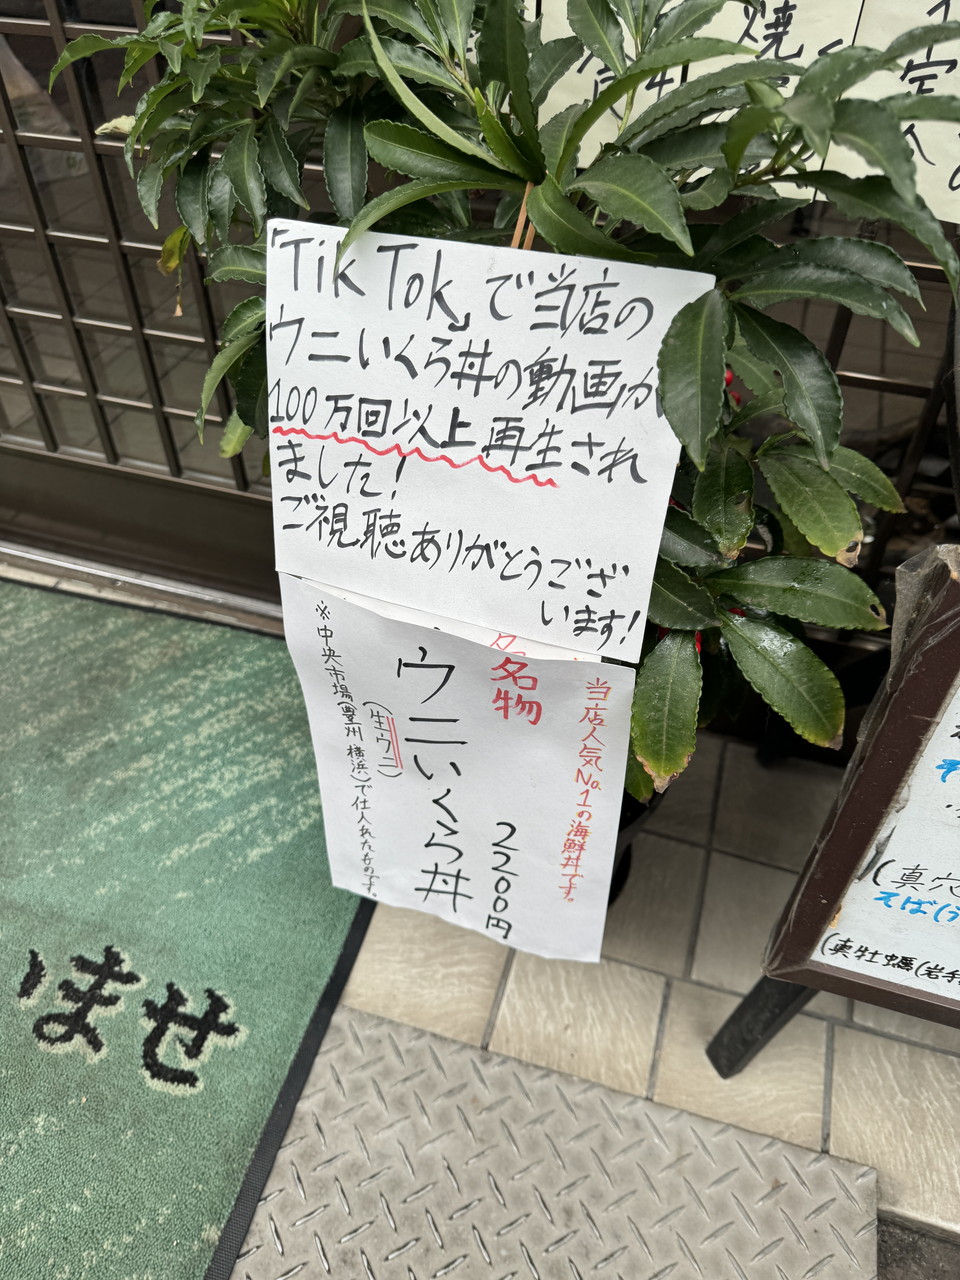 「TikTok」で当店の
ウニいくら丼の動画が
100万回以上再生され
ました!
ご視聴ありがとうござ
います!
当店人気No.1の海鮮丼です。
名物
2200円
ウニいくら丼
(生ウニ)
※中央市場(豊州 横浜)で仕入れたものです。
ませ
(真穴
えば(う
(真牡蠣(岩手